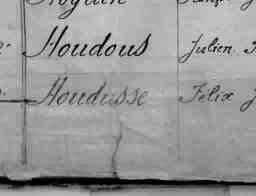 Houdous Julien
Houdusse Félix